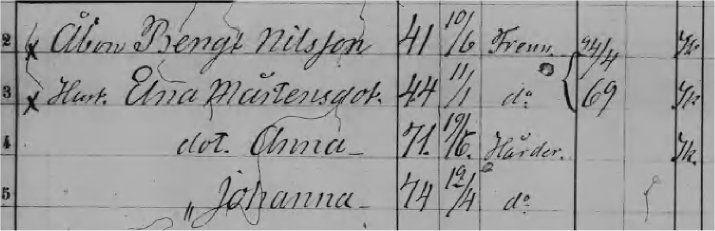 2 x Åbon Bengt Nilsson 41 10/6 Frenn. 24/4 Yk.
3 x Hust. Elna Mårtensdot. 44 11/1 do 69 Yk
4 dot. Anna 71. 19/5. Hårder. Yk.
5 " Johanna 74 12/4 do